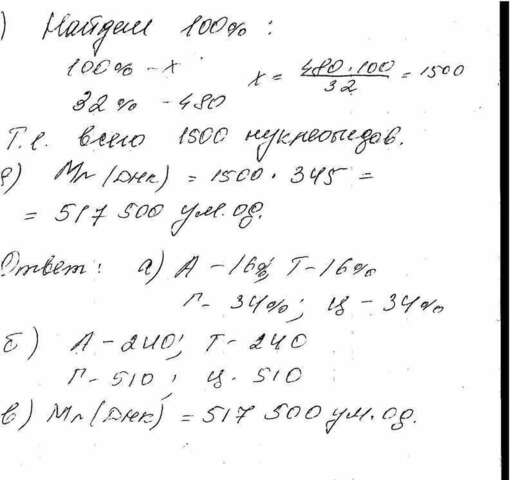 ) Найдем 100% :
100% - x
x = 480·100 / 32 = 1500
32% - 480
Т.е. всего 1500 нуклеотидов.
) Mr (ДНК) = 1500 · 345 =
= 517 500 у.м.ед.
Ответ: а) А - 16%; Т - 16%
Г - 34%; Ц - 34%
б) А - 240; Т - 240
Г - 510; Ц - 510
в) Mr (ДНК) = 517 500 у.м.ед.